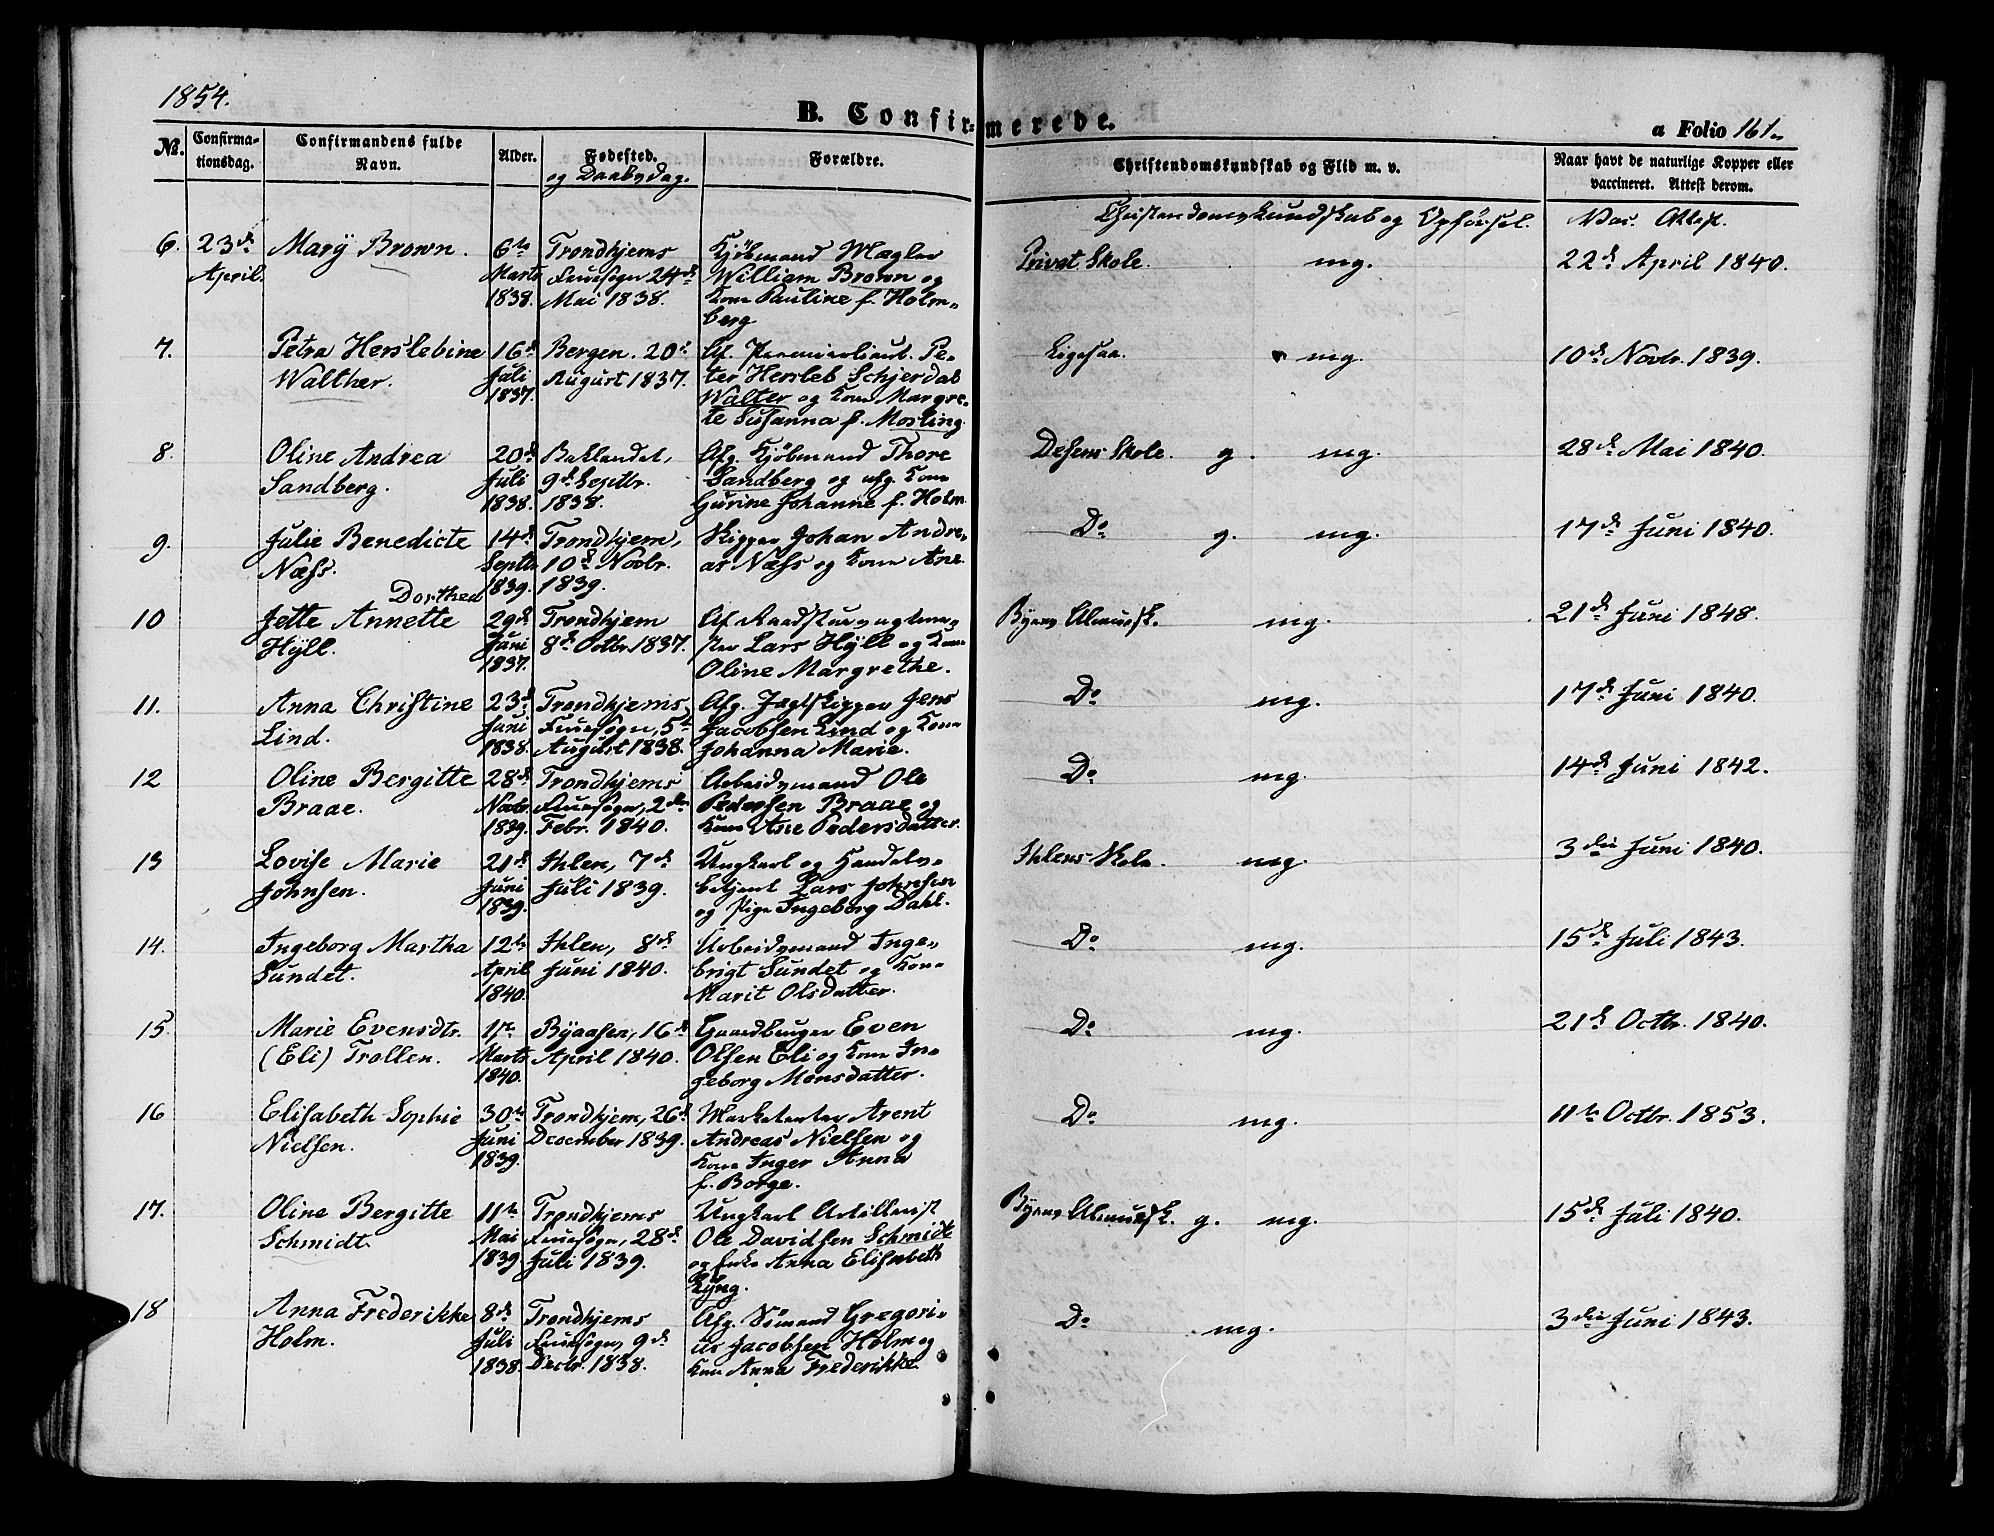 1854.
B. Confirmerede.
a Folio 161
No. Confirmationsdag. Confirmandens fulde Navn. Alder. Fødested. og Daabsdag. Forældre. Christendomskundskab og Flid m. v. Naar havt de naturlige Kopper eller vaccineret. Attest derom.
Christendomskundskab og Opførsel. Vac. Attest.
6. 23d Mary Brown. 6te Trondhjems Kjøbmand Mægler Privat Skole. mg. 22d April 1840.
April Marts Fruesogn 24d William Brown og
1838. Mai 1838. Kone Pauline f. Holm-
berg
7. Petra Herslebine 16d Bergen. 20d Af. Premierlieut. Pe- Ligesaa. mg. 10d Novbr. 1839.
Walther. Juli August 1837. ter Hersleb Schjerdal
1837. Walter og Kone Margre-
te Susanna f. Mosling.
8. Oline Andrea 20d Baklandet, Afg. Kjöbmand Thore Desens Skole. g. mg. 28d Mai 1840.
Sandberg. Juli 9d Septbr. Sandberg og afg. Kone
1838. 1838. Gurine Johanne f. Holm
9. Julie Benedicte 14d Trondhjem, Skipper Johan Andre- Do g. mg. 17d Juni 1840.
Næss. Septb. 10d Novbr. as Næss og Kone Ane
Dorthea 1839. 1839.
10 Jette Annette 29d Trondhjem Af. Raadstuevagtme- Byens Almuesk. mg. 21d Juni 1848.
Hyll. Juni 8d Octbr. 1837. ster Lars Hyll og Kone
1837. Oline Margrethe.
11. Anna Christine 23d Trondhjems Afg. Jagtskipper Jens Do mg. 17d Juni 1840.
Lind. Juni Fruesogn, 5te Jacobsen Lind og Kone
1838. August 1838. Johanna Marie.
12 Oline Bergitte 28d Trondhjems Arbeidsmand Ole Do mg. 14d Juni 1842.
Braae. Novbr. Fruesogn, 2den Pedersen Braae og
1839. Febr. 1840. Kone Ane Pedersdatter.
13 Lovise Marie 21d Ihlen, 7d Ungkarl og Handels- Ihlens Skole. mg. 3die Juni 1840.
Johnsen. Juni Juli 1839. betjent Lars Johnsen
1839. og Pige Ingeborg Dahl.
14. Ingeborg Martha 12te Ihlen, 8d Arbeidsmand Inge- Do mg. 15d Juli 1843.
Sundet. April Juni 1840. brigt Sundet og Kone
1840. Marit Olsdatter.
15. Marie Evensdtr. 11te Byaasen, 16d Gaardbruger Even Do mg. 21d Octbr. 1840.
(Eli) Trollen. Marts April 1840. Olsen Eli og Kone In-
1840. geborg Monsdatter.
16 Elisabeth Sophie 30te Trondhjem, 26d Marketenter Arent Do mg. 11te Octbr. 1853.
Nielsen. Juni December 1839. Andreas Nielsen og
1839. Kone Inger Anna
f. Borge.
17. Oline Bergitte 11te Trondhjems Ungkarl Artillerist Byens Almuesk. g. mg. 15d Juli 1840.
Schmidt. Mai Fruesogn, 28d Ole Davidsen Schmidt
1839. Juli 1839. og Enke Anna Elisabeth
Ryng.
18 Anna Frederikke 8d Trondhjems Afg. Sömand Gregori- Do mg. 3die Juni 1843.
Holm. Juli Fruesogn, 9d us Jacobsen Holm og
1838. Decbr. 1838. Kone Anna Frederikke.